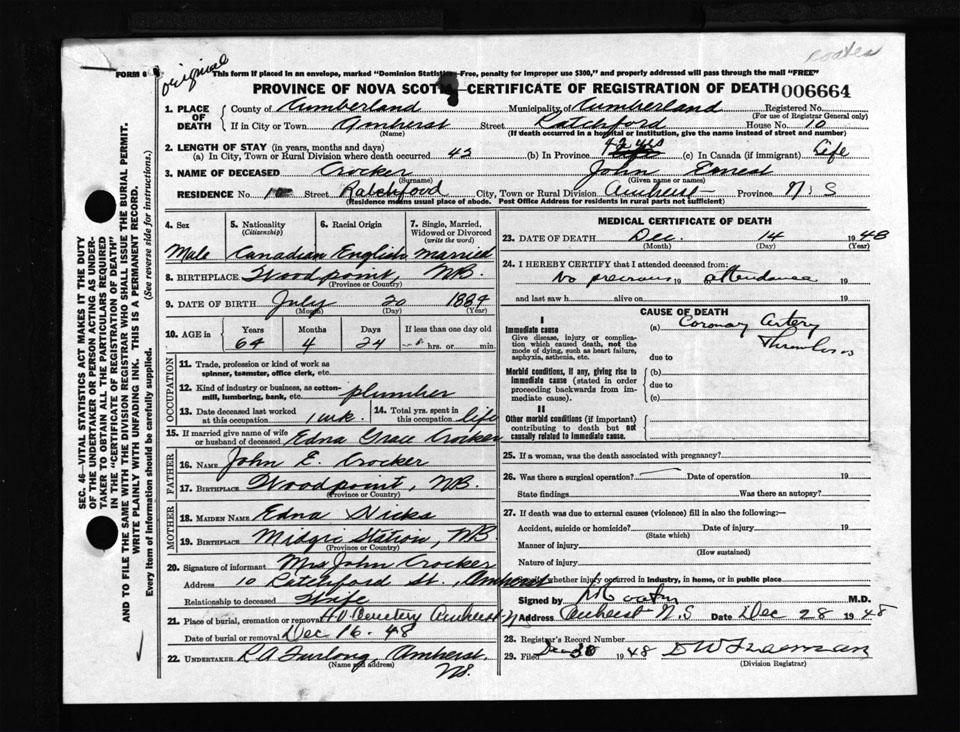 Coates
FORM 6
original
This form if placed in an envelope, marked "Dominion Statistics—Free, penalty for improper use $300," and properly addressed will pass through the mail "FREE"
PROVINCE OF NOVA SCOTIA—CERTIFICATE OF REGISTRATION OF DEATH 006664
1. PLACE OF DEATH
County of Cumberland Municipality of Cumberland Registered No.
(For use of Registrar General only)
If in City or Town Amherst Street Ratchford House No. 10
(Name) (If death occurred in a hospital or institution, give the name instead of street and number)
2. LENGTH OF STAY (in years, months and days)
(a) In City, Town or Rural Division where death occurred 42 (b) In Province 42 yrs (c) In Canada (if immigrant) Life
3. NAME OF DECEASED Crocker John Ernest
(Surname) (Given name or names)
RESIDENCE No. 10 Street Ratchford City, Town or Rural Division Amherst Province N.S
(Residence means usual place of abode. Post Office Address for residents in rural parts not sufficient)
4. Sex 5. Nationality (Citizenship) 6. Racial Origin 7. Single, Married, Widowed or Divorced (write the word)
Male Canadian English Married
8. BIRTHPLACE Woodpoint, NB.
(Province or Country)
9. DATE OF BIRTH July 20 1884
(Month) (Day) (Year)
10. AGE in Years Months Days If less than one day old
64 4 24 hrs. or min.
OCCUPATION
11. Trade, profession or kind of work as spinner, teamster, office clerk, etc.
12. Kind of industry or business, as cotton-mill, lumbering, bank, etc. plumber
13. Date deceased last worked at this occupation 1 wk. 14. Total yrs. spent in this occupation life
15. If married give name of wife or husband of deceased Edna Grace Crocker
FATHER
16. NAME John E. Crocker
17. BIRTHPLACE Woodpoint, NB.
(Province or Country)
MOTHER
18. MAIDEN NAME Edna Hicks
19. BIRTHPLACE Midgic Station, NB.
(Province or Country)
20. Signature of informant Mrs John Crocker
Address 10 Ratchford St., Amherst
Relationship to deceased Wife
21. Place of burial, cremation or removal Cemetery Amherst NS
Date of burial or removal Dec 16. 48
22. UNDERTAKER R A Furlong, Amherst.
(Name and address) NS.
MEDICAL CERTIFICATE OF DEATH
23. DATE OF DEATH Dec. 14 1948
(Month) (Day) (Year)
24. I HEREBY CERTIFY that I attended deceased from:
No previous 19 attendance 19
and last saw h alive on 19
CAUSE OF DEATH
I
Immediate cause (a) Coronary Artery
Give disease, injury or complication which caused death, not the mode of dying, such as heart failure, asphyxia, asthenia, etc. due to Thrombosis
Morbid conditions, if any, giving rise to immediate cause (stated in order proceeding backwards from immediate cause). (b) due to (c)
II
Other morbid conditions (if important) contributing to death but not causally related to immediate cause.
25. If a woman, was the death associated with pregnancy?
26. Was there a surgical operation? Date of operation 19
State findings Was there an autopsy?
27. If death was due to external causes (violence) fill in also the following:—
Accident, suicide or homicide? Date of injury 19
(State which)
Manner of injury
(How sustained)
Nature of injury
Specify whether injury occurred in industry, in home, or in public place
Signed by M.D.
Address Amherst N.S Date Dec 28 1948
28. Registrar's Record Number
29. Filed Dec 30 1948
(Division Registrar)
SEC. 46—VITAL STATISTICS ACT MAKES IT THE DUTY
OF THE UNDERTAKER OR PERSON ACTING AS UNDER-
TAKER TO OBTAIN ALL THE PARTICULARS REQUIRED
IN THE "CERTIFICATE OF REGISTRATION OF DEATH"
AND TO FILE THE SAME WITH THE DIVISION REGISTRAR WHO SHALL ISSUE THE BURIAL PERMIT.
WRITE PLAINLY WITH UNFADING INK. THIS IS A PERMANENT RECORD.
Every item of information should be carefully supplied. (See reverse side for instructions.)